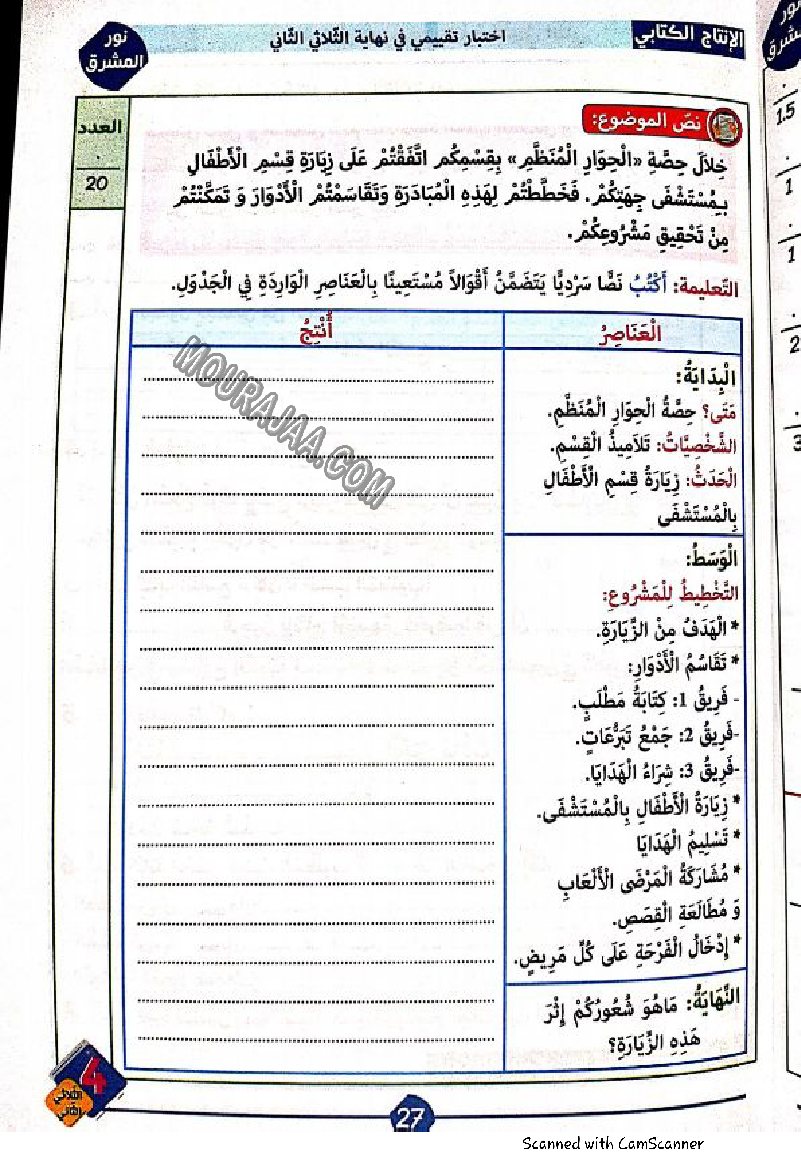 الإنتاج الكتابي
اختبار تقييمي في نهاية الثّلاثي الثّاني
نور
المشرق
العدد
.
20
نصّ الموضوع:
خِلَالَ حِصَّةِ «الْحِوَارِ الْمُنَظَّمِ» بِقِسْمِكُم اتَّفَقْتُمْ عَلَى زِيَارَةِ قِسْمِ الْأَطْفَالِ
بِمُسْتَشْفَى جِهَتِكُمْ. فَخَطَّطْتُمْ لِهَذِهِ الْمُبَادَرَةِ وَتَقَاسَمْتُمْ الْأَدْوَارَ وَ تَمَكَّنْتُمْ
مِنْ تَحْقِيقِ مَشْرُوعِكُمْ.
التّعليمة: أَكْتُبُ نَصًّا سَرْدِيًّا يَتَضَمَّنُ أَقْوَالاً مُسْتَعِينًا بِالْعَنَاصِرِ الْوَارِدَةِ فِي الْجَدْوَلِ.
الْعَنَاصِرُ
أُنْتِجُ
الْبِدَايَةُ:
مَتَى؟ حِصَّةُ الْحِوَارِ الْمُنَظَّمِ.
الشَّخْصِيَّاتُ: تَلَامِيذُ الْقِسْمِ.
الْحَدَثُ: زِيَارَةُ قِسْمِ الْأَطْفَالِ
بِالْمُسْتَشْفَى
الْوَسَطُ:
التَّخْطِيطُ لِلْمَشْرُوعِ:
* الْهَدَفُ مِنْ الزِّيَارَةِ.
* تَقَاسُمُ الْأَدْوَارِ:
- فَرِيقُ 1: كِتَابَةُ مَطْلَبٍ.
-فَرِيقُ 2: جَمْعُ تَبَرُّعَاتٍ.
-فَرِيقُ 3: شِرَاءُ الْهَدَايَا.
* زِيَارَةُ الْأَطْفَالِ بِالْمُسْتَشْفَى.
* تَسْلِيمُ الْهَدَايَا
* مُشَارَكَةُ الْمَرْضَى الْأَلْعَابِ
وَ مُطَالَعَةِ الْقِصَصِ.
* إِدْخَالُ الْفَرْحَةِ عَلَى كُلِّ مَرِيضٍ.
النِّهَايَةُ: مَاهُوَ شُعُورُكُمْ إِثْرَ
هَذِهِ الزِّيَارَةِ؟
MOURAJAA.COM
4
الثلاثي
الثاني
27
Scanned with CamScanner
1.5
1
1
2
3